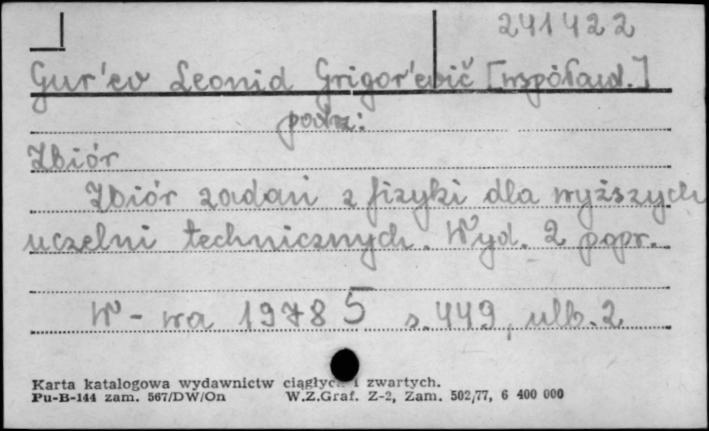 241422
Gur'ev Leonid Grigor'evič [współaut.]
podz:
Zbiór
Zbiór zadań z fizyki dla wyższych
uczelni technicznych. Wyd. 2 popr.
W-wa 1978 5 s. 449, ulb. 2
Karta katalogowa wydawnictw ciągłych i zwartych.
Pu-B-144 zam. 567/DW/On W.Z.Graf. Z-2, Zam. 502/77, 6 400 000